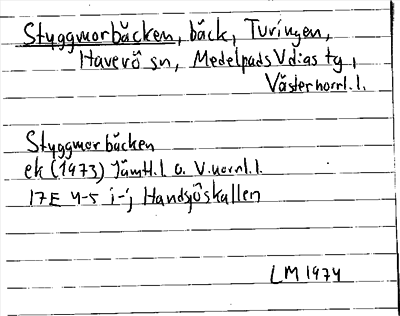 Styggmorbäcken, bäck, Turingen,
Haverö sn, Medelpads V d:as tg,
Västernorrl. l.
Styggmorbäcken
ek (1973) Jämtl. l o. V.norrl. l.
17E 4-5 i-j Handsjöskallen
LM 1974